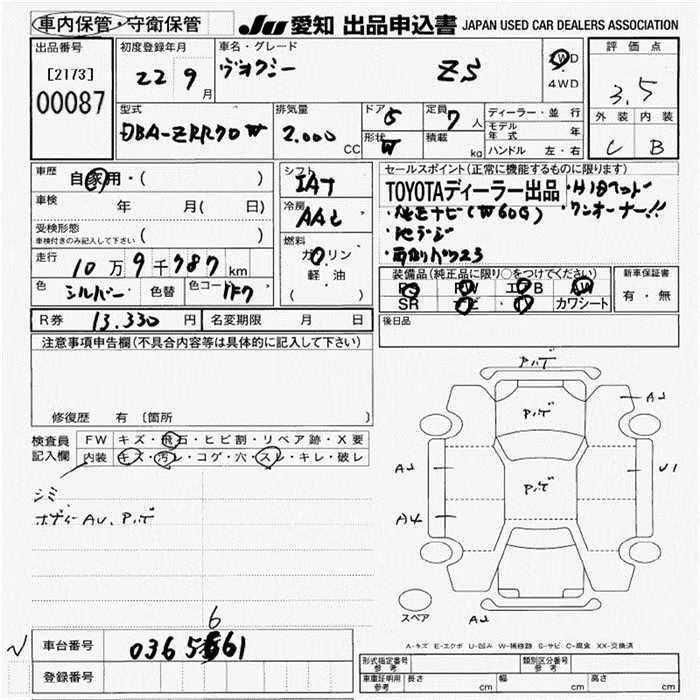 車内保管・守衛保管 JU 愛知 出品申込書 JAPAN USED CAR DEALERS ASSOCIATION
出品番号 初度登録年月 車名・グレード 評価点
[2173] 22 9月 ヴォクシー ZS 2WD
・
4WD 3.5
00087 外装 内装
型式 排気量 ドア 5 定員 7人 ディーラー・並行
DBA-ZRR70W 2.000 CC 形状 W 積載 kg モデル年式 年 C B
ハンドル 左・右
車歴 自家用・( ) シフト IAT セールスポイント(正常に機能するものに限ります)
車検 年 月( 日) 冷房 AAC TOYOTAディーラー出品
受検形態
車検付きのみ記入して下さい ( ) 純正ナビ(W60G) ・ワンオーナー!!
走行 10万9千787km 燃料 ガソリン
・
軽油
( )
装備品(純正品に限り○をつけてください) 新車保証書
色 シルバー 色替 色コード 1F7 PS PW エアB AW 有・無
SR ナビ TV カワシート
R券 13.330円 名変期限 月 日 後日品
注意事項申告欄(不具合内容等は具体的に記入して下さい)
修復歴 有 〔箇所
検査員
記入欄 FW キズ・飛石・ヒビ割・リペア跡・X要
内装 キズ・汚レ・コゲ・穴・スレ・キレ・破レ
シミ
ボディーAU、Pハゲ
Pハゲ
Pハゲ A2
A2 Pハゲ U1
A4
スペア A2
A-キズ E-エクボ U-凹み W-補修跡 S-サビ C-腐食 XX-交換済
6
車台番号 0365561
登録番号
形式指定番号
参考 類別区分番号
参考
車庫証明用
参考 長さ cm 幅 cm 高さ cm